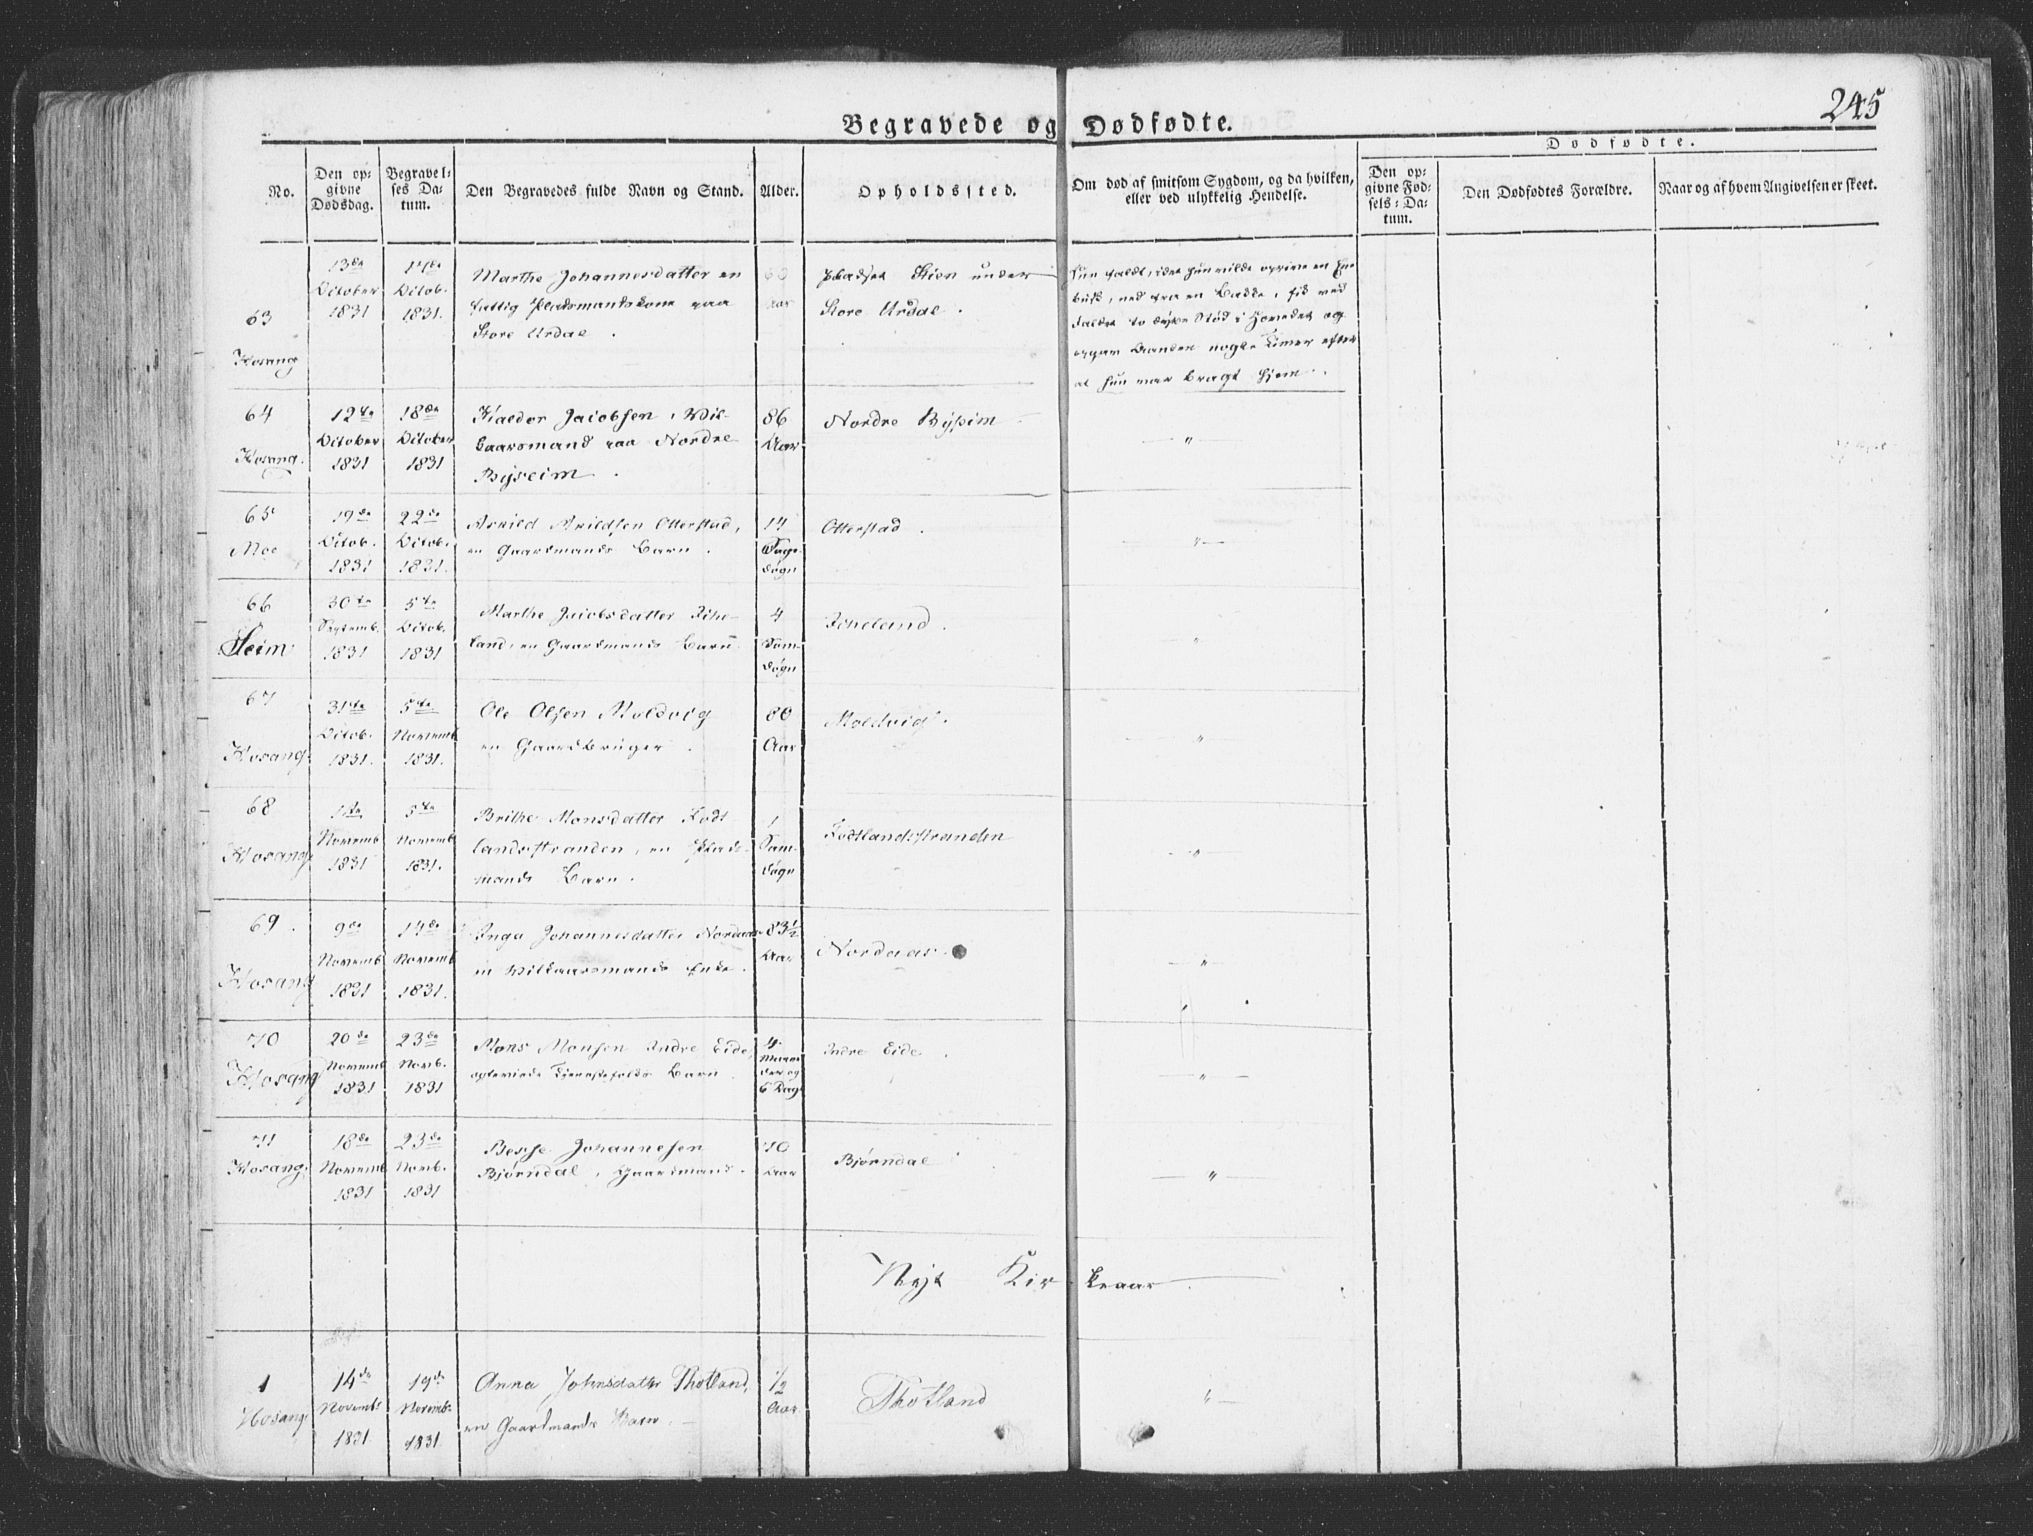 245
Begravede og Dødfødte.
No.
Den op=
givne
Dødsdag.
Begravel=
ses Da=
tum.
Den Begravedes fulde Navn og Stand.
Alder.
Opholdssted.
Om død af smitsom Sygdom, og da hvilken,
eller ved ulykkelig Hendelse.
Dødfødte.
Den op=
givne Fød=
sels=Da=
tum.
Den Dødfødtes Forældre.
Naar og af hvem Angivelsen er skeet.
63
Hosang
13de
October
1831
17de
Octob.
1831.
Marthe Johannesdatter en
fattig Pladsmandskone paa
Store Urdal.
60
Aar
Pladset Skien under
Store Urdal.
hun faldt, idet hun vilde oprive en Ene
busk, ned fra en Bakke, fik ved
Faldet to Stød i Hovedet og
opgav Aanden nogle Timer efter
at hun var bragt hjem.
64
Hosang.
12te
October
1831
18de
October
1831
Haldor Jacobsen, Vil=
kaarsmand paa Nordre
Byseim.
86
Aar
Nordre Byseim
"
65
Moe
19de
Octob.
1831
22de
Octob.
1831.
Arnild Arildsen Otterstad,
en Gaardmands Barn.
14
Døgn
Otterstad.
"
66
Seim
30te
Septemb.
1831
5te
Octob.
1831
Marthe Jacobsdatter
land, en Gaardmands Barn
4
Døgn
"
67
Hosang.
31te
Octob.
1831.
5te
Novemb
1831.
Ole Olsen Moldvig
en Gaardbruger.
80
Aar
Moldvig.
"
68
Hosang.
1te
Novemb
1831
5te
Novemb
1831.
Brithe Monsdatter Fodt
landsstranden, en Plads=
mands Barn.
1
Døgn
Fodtlandsstranden
"
69.
Hosang
9de
Novemb
1831
14de
Novemb
1831.
Inga Johannesdatter Nordaas
en Vilkaarsmands Enke.
83½
Aar
Nordaas.
"
70
Hosang
20de
Novemb
1831
23de
Novb.
1831
Mons Monsen Indre Eide,
Tjenestefolks Barn.
4
Maane
der og
6 Dage
Indre Eide.
"
71
Hosang.
18de
Novemb
1831
23de
Novb.
1831
Johannesen
Bjørndal, Gaardmand.
70
Aar
Bjørndal
"
Nyt Kirkeaar.
1
Hosang
14de
Novemb
1831
19de
Novemb.
1831
Anna Johnsdatter Thotland,
en Gaardmands Barn.
½
Aar
Thotland
"